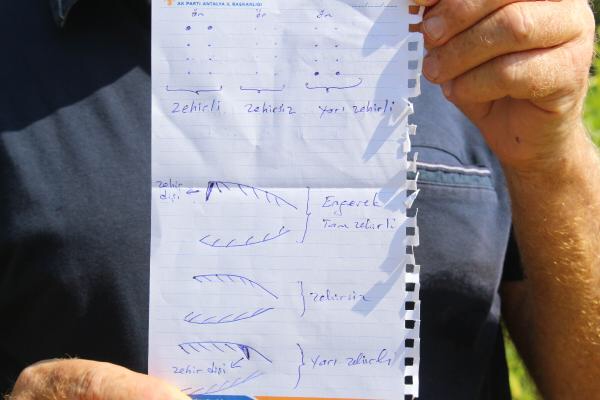 AK PARTİ ANTALYA İL BAŞKANLIĞI
ön ön ön
zehirli zehirsiz yarı zehirli
zehir
dişi
Engerek
Tam zehirli
zehirsiz
yarı zehirli
zehir dişi